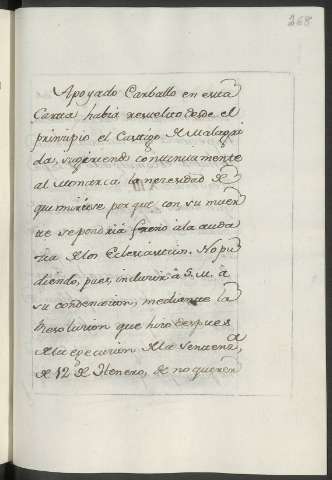 268
Apoyado Carballo en esta
Carta habia resuelto desde el
principio el Castigo de Malagri
da, sugiriendo continuamente
al Monarca la necesidad de
que muriese por que con su muer
te se pondria freno á la auda
zia de los Eclesiasticos. No pu
diendo, pues, inclinir à S. M. a
su condenacion, mediante la
Resolucion que hizo despues
de la egecucion de la Sentencia
de 12 de Henero, de no querer